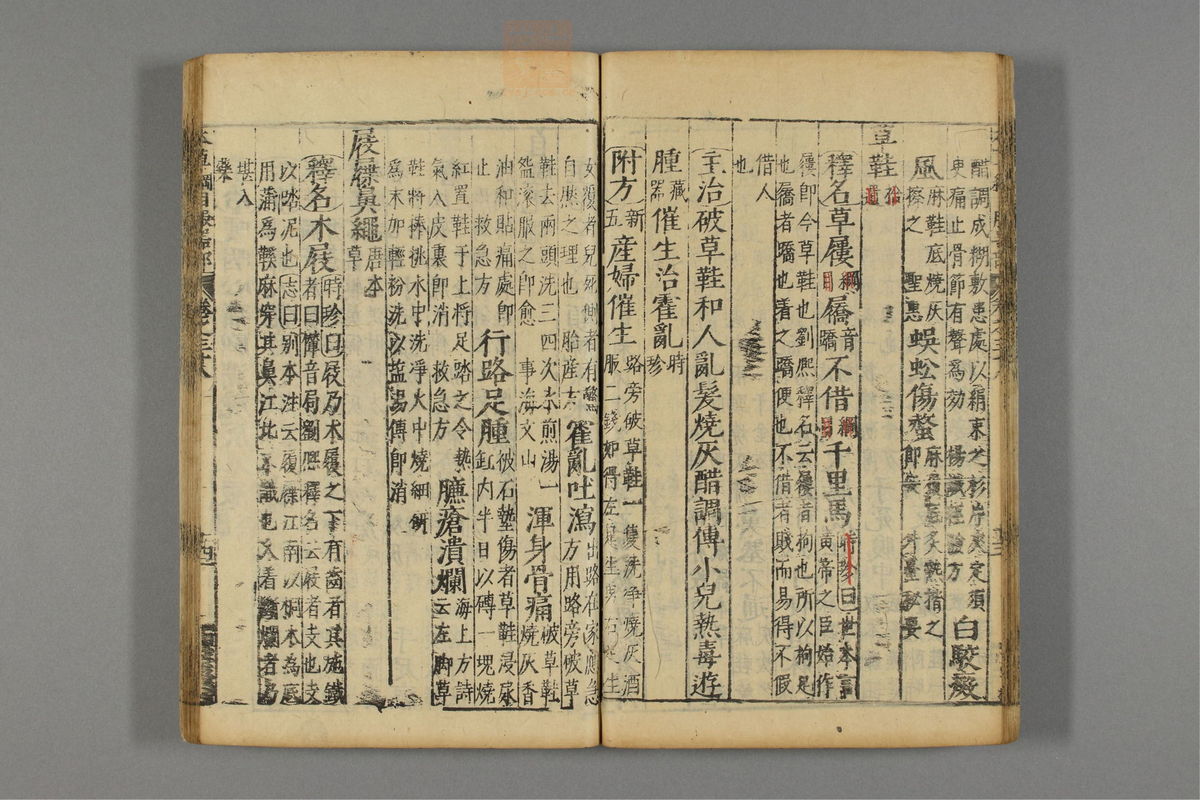 醋調成糊敷患處以絹束之杉片夾定須白駁癜
史痛止骨節有聲為効 楊誠經驗方
風麻鞋底燒灰擦之 聖惠 蜈蚣傷螫麻履底炙熱揩之即安 外臺秘要
草鞋拾遺
釋名草屨綱目屩音蹻不借綱目千里馬時珍曰世本言黃帝之臣始作
屨即今草鞋也劉熙釋名云屨者拘也所以拘足
也屩者蹻也著之蹻便也不借者賤而易得不假
借人
也
主治破草鞋和人亂髮燒灰醋調傅小兒熱毒遊
腫藏器催生治霍亂時珍
附方新五産婦催生路旁破草鞋一隻洗淨燒灰酒服二錢如得左足生男右足生
女覆者兒死側者有驚自然之理也 胎産方 霍亂吐瀉出路在家應急方用路旁破草
鞋去兩頭洗三四次水煎湯一盌滾服之即愈 事海文山 渾身骨痛破草鞋燒灰香
油和貼痛處即止 救急方 行路足腫被石墊傷者草鞋浸尿
缸內半日以磚一塊燒紅置鞋于上將足踏之令熱
氣入皮裏即消 救急方 臁瘡潰爛海上方詩云左脚草
鞋將棒挑水中洗淨火中燒細研
為末加輕粉洗以鹽湯傅即消
屐屧鼻繩唐本草
釋名木屐時珍曰屐乃木履之下有齒者其施鐵者曰㯧音局劉熙釋名云屐者支也支
以踏泥也志曰别本注云履屧江南以桐木為底
用蒲為鞋麻穿其鼻江北不識也久着斷爛者乃
堪入
藥